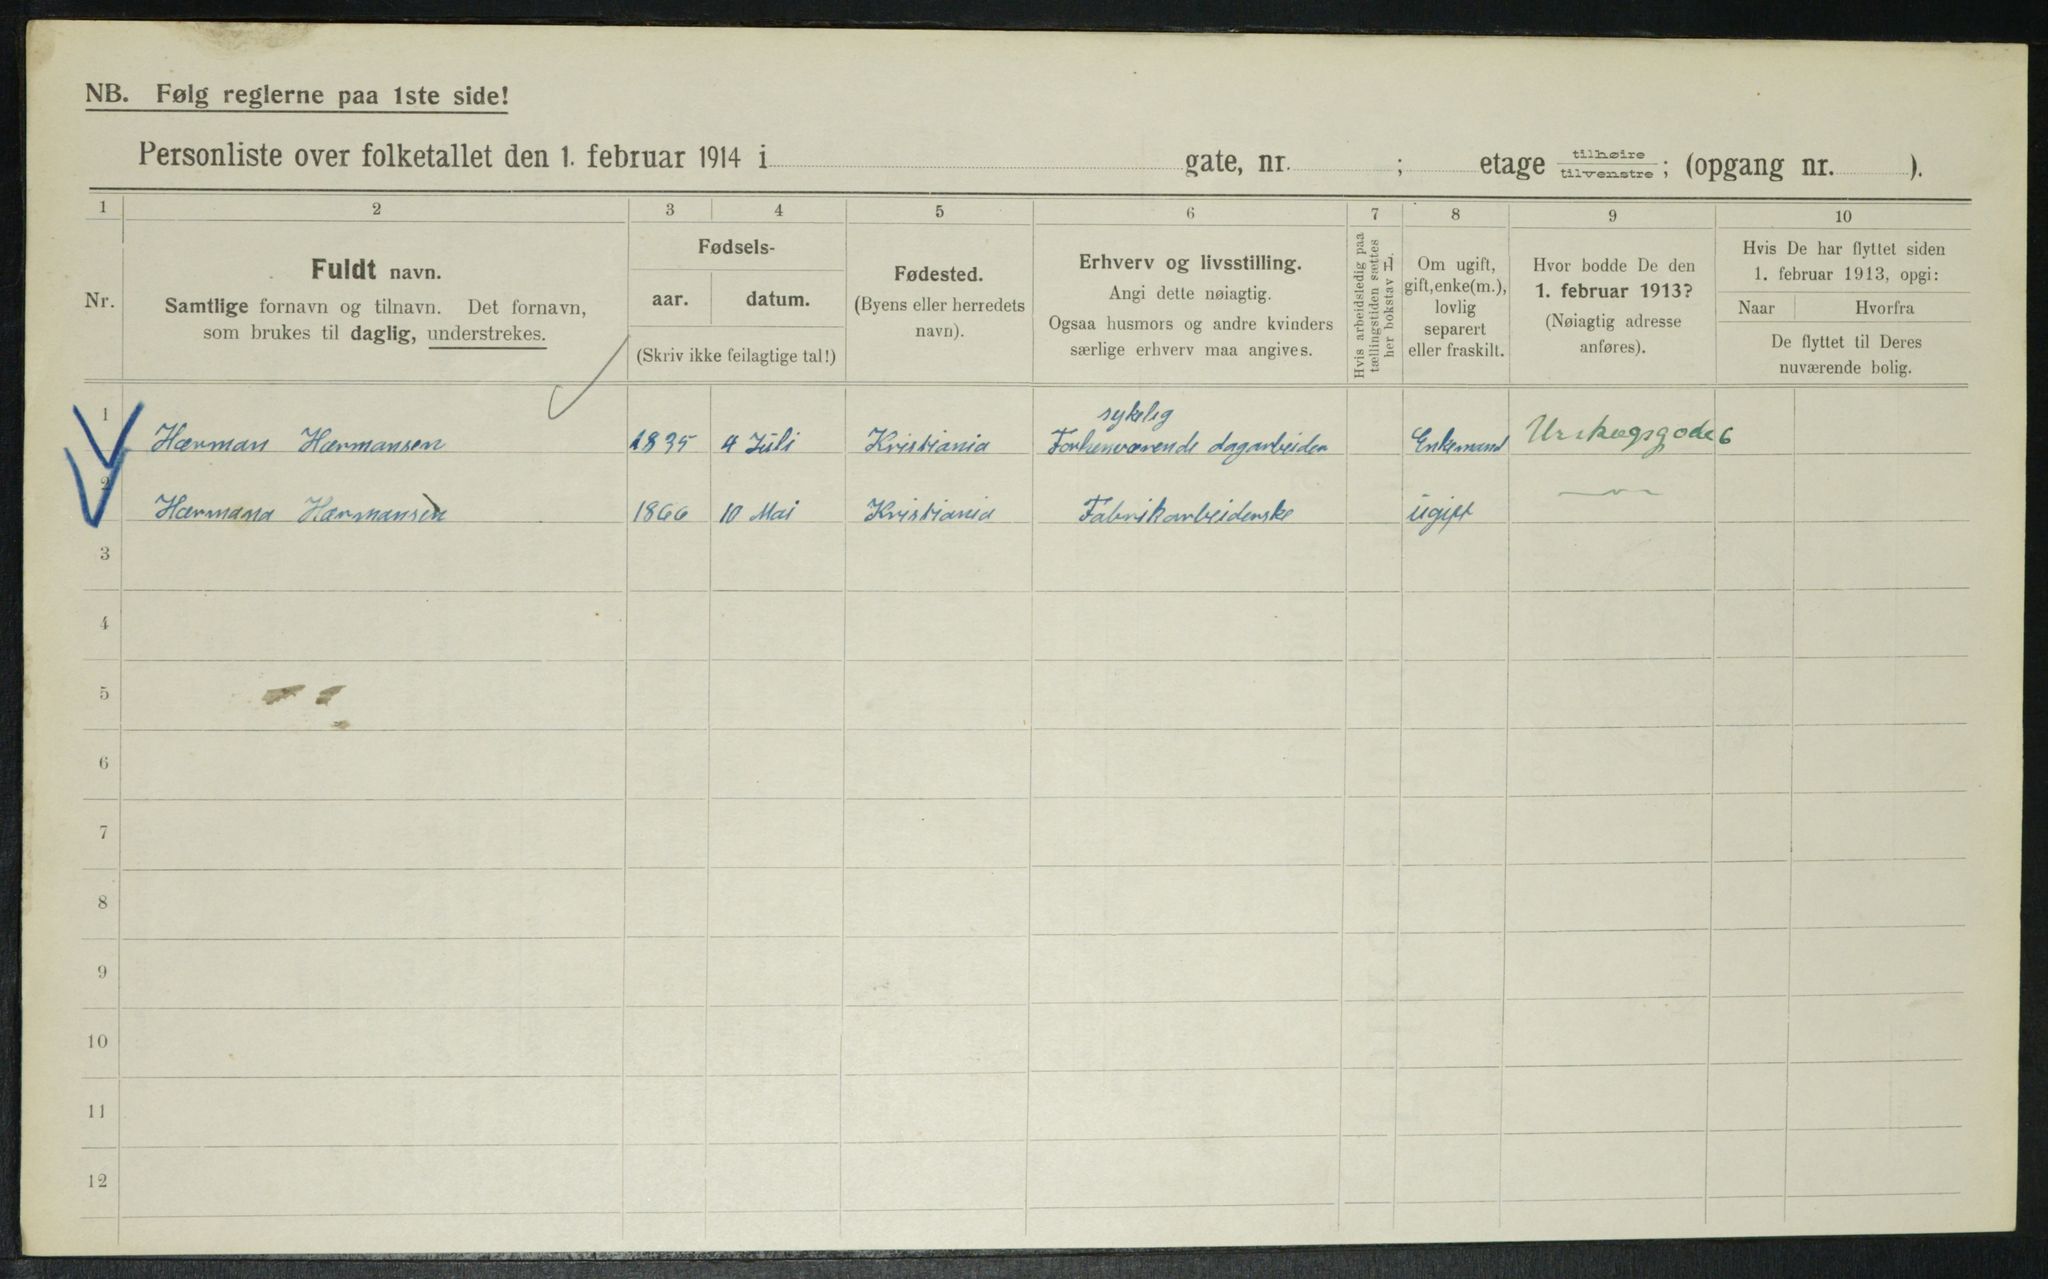 NB. Følg reglerne paa 1ste side!
Personliste over folketallet den 1. februar 1914 i gate, nr. ; etage tilhøire tilvenstre ; (opgang nr. ).
1 2 3 4 5 6 7 8 9 10
Nr.
Fuldt navn.
Samtlige fornavn og tilnavn. Det fornavn,
som brukes til daglig, understrekes.
Fødsels-
aar. datum.
(Skriv ikke feilagtige tal!)
Fødested.
(Byens eller herredets
navn).
Erhverv og livsstilling.
Angi dette nøiagtig.
Ogsaa husmors og andre kvinders
særlige erhverv maa angives.
Hvis arbeidsledig paa
tællingstiden sættes
her bokstav L.
Om ugift,
gift, enke(m.),
lovlig
separert
eller fraskilt.
Hvor bodde De den
1. februar 1913?
(Nøiagtig adresse
anføres).
Hvis De har flyttet siden
1. februar 1913, opgi:
Naar Hvorfra
De flyttet til Deres
nuværende bolig.
sykelig
1 Hærman Hærmansen 1835 4 Juli Kristiania Forhenværende dagarbeider Enkemand 6
2 Hærmana Hærmansen 1866 10 Mai Kristiania Fabrikarbeiderske ugift
3
4
5
6
7
8
9
10
11
12